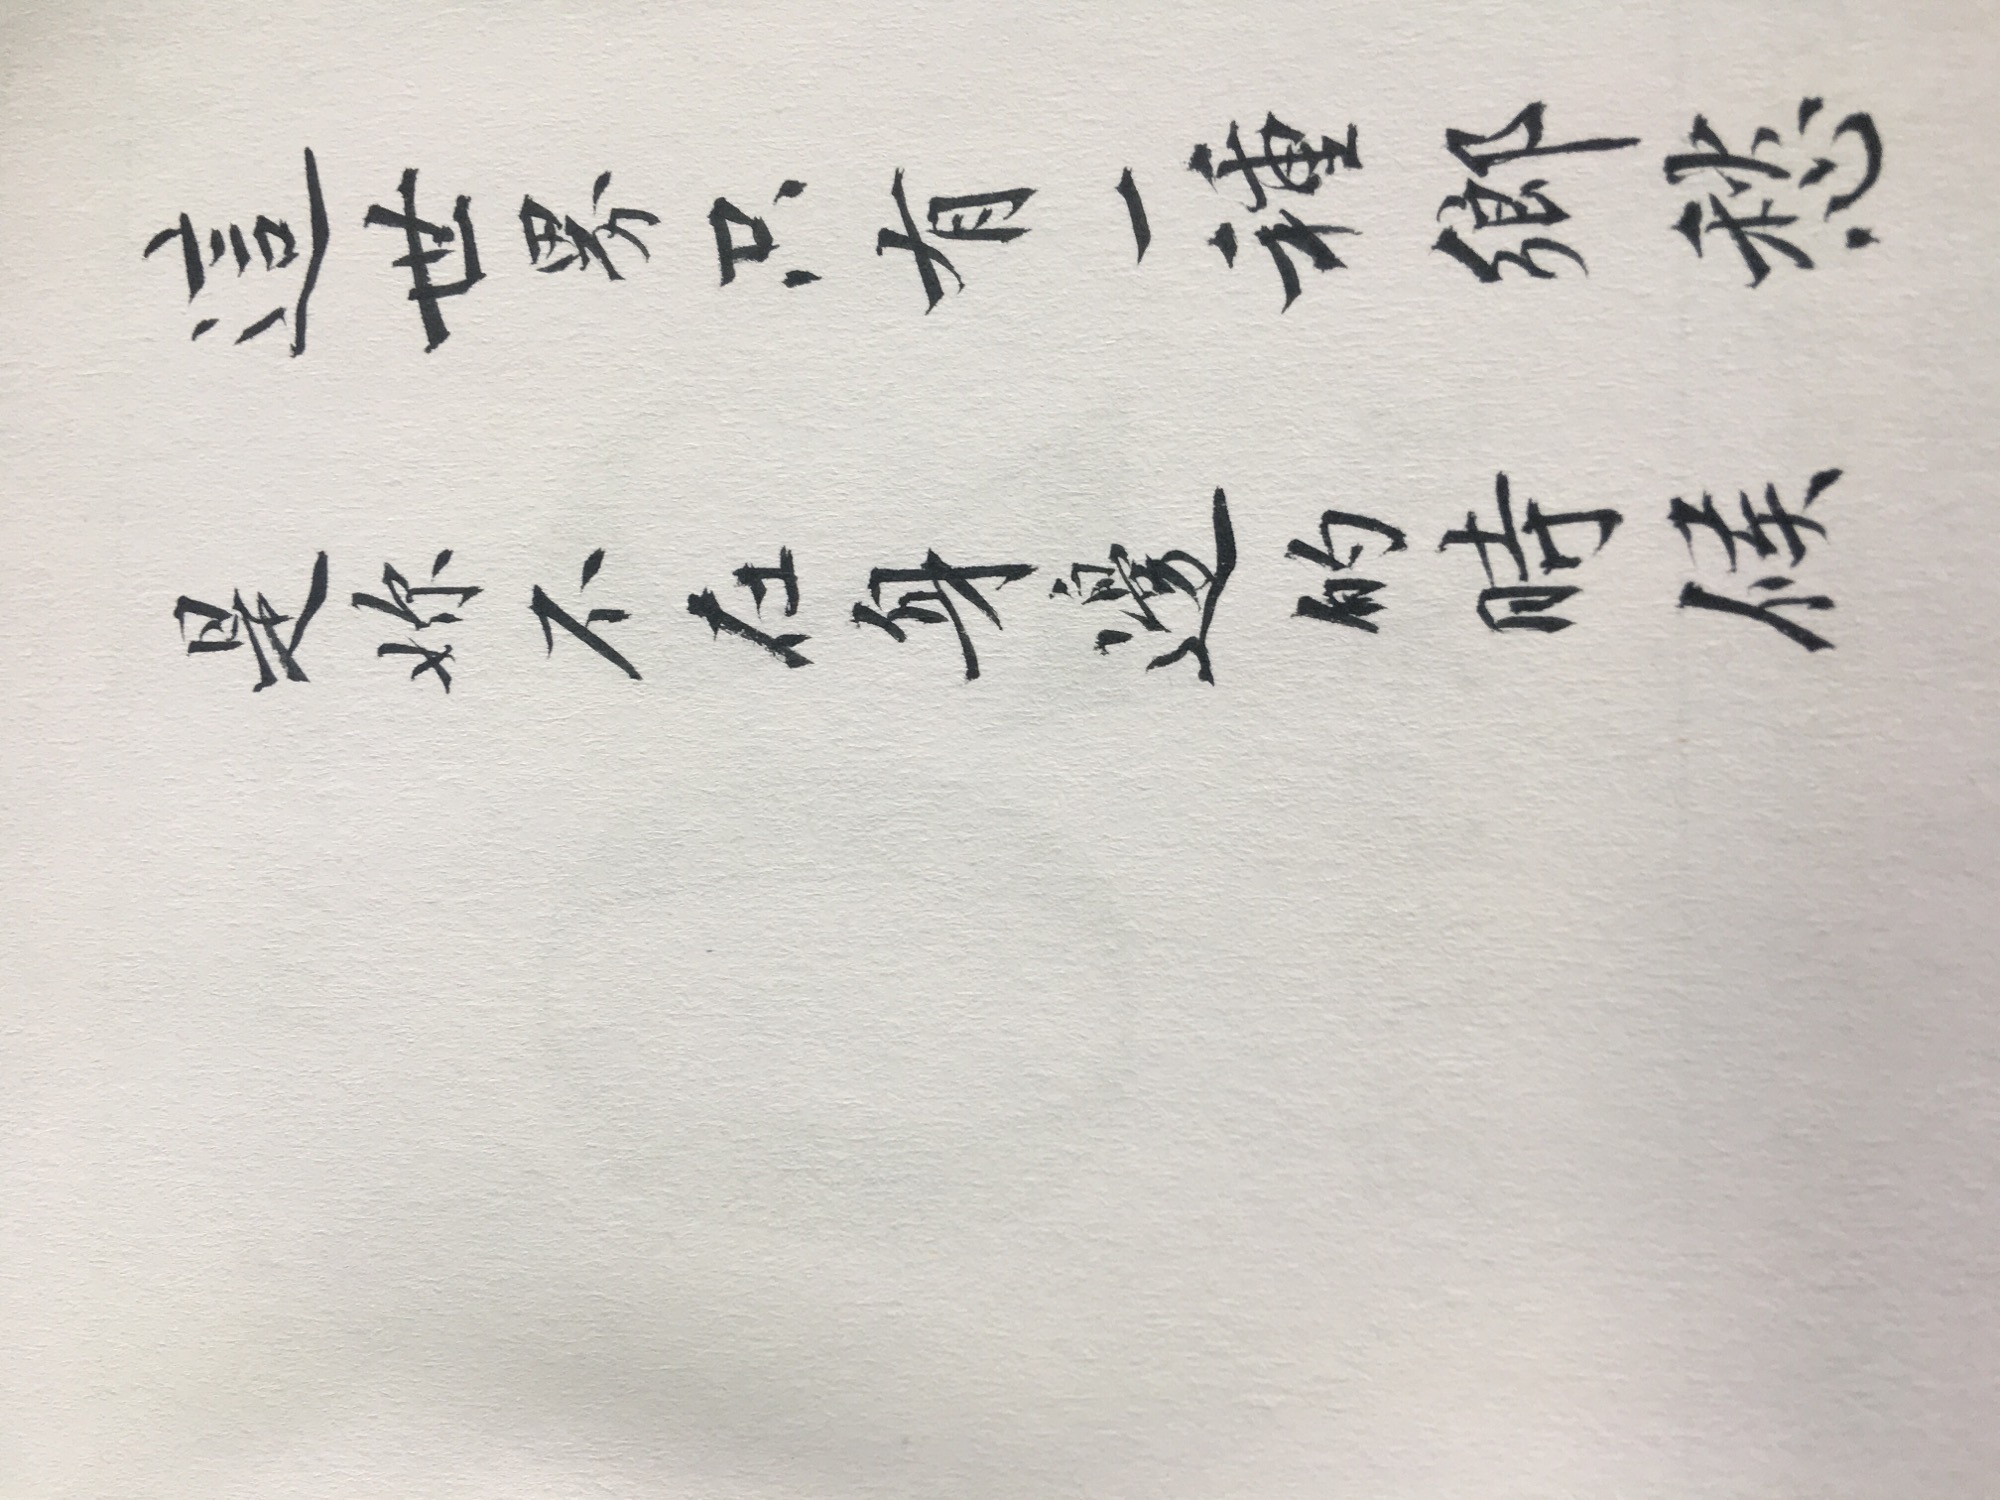 這世界只有一種鄉愁
是妳不在身邊的時候